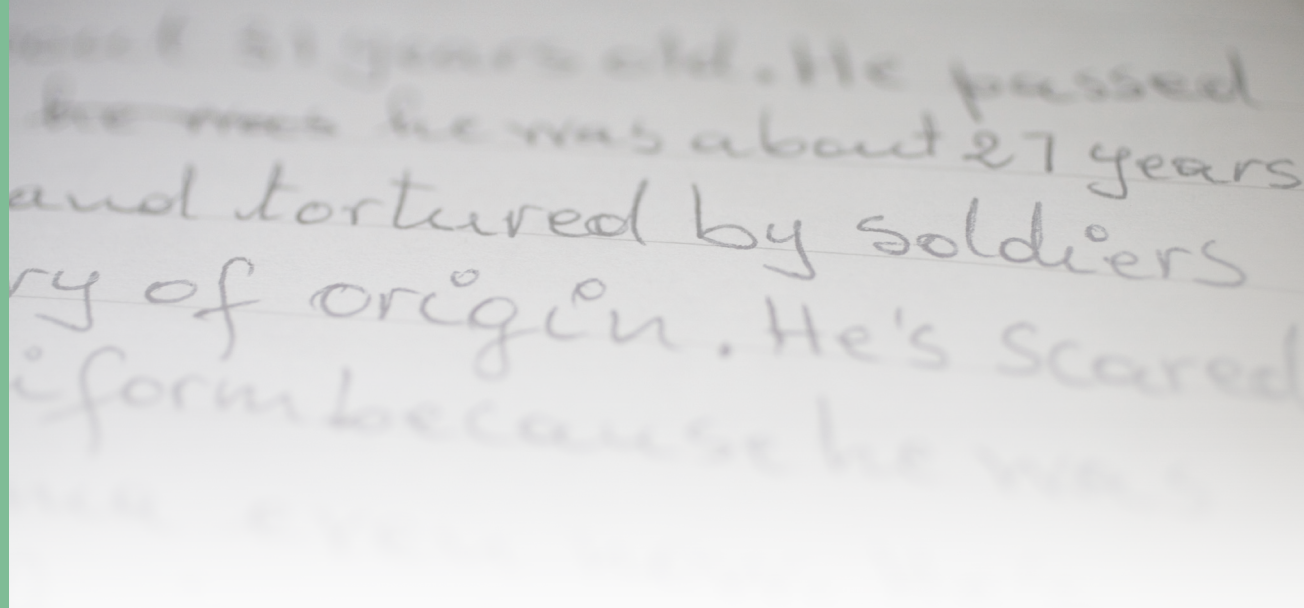 years old. He passed
he was he was about 27 years
and tortured by soldiers
ry of origin. He's scared
iform because he was